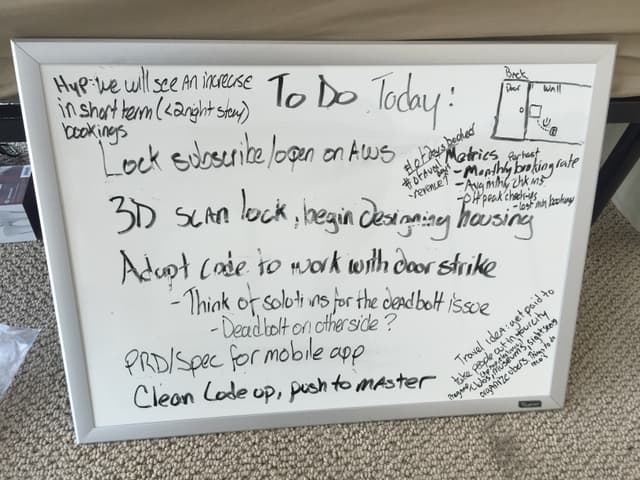 Hyp: we will see an increase
in short term (<2 night stay)
bookings
To Do Today:
Back
Door
Wall
Lock subscribe/open on AWS
# of days booked
# of avail
revenue?
Metrics for test
- Monthly booking rate
- Avg mthly chk ins
- Off peak check ins
- last min bookings
3D scan lock, begin designing housing
Adapt code to work with door strike
- Think of solutions for the deadbolt issue
- Deadbolt on other side?
PRD/Spec for mobile app
Clean Code up, push to master
Travel Idea: get paid to
take people out in your city
clubs, museums, sightseeing
organize ubers, things to